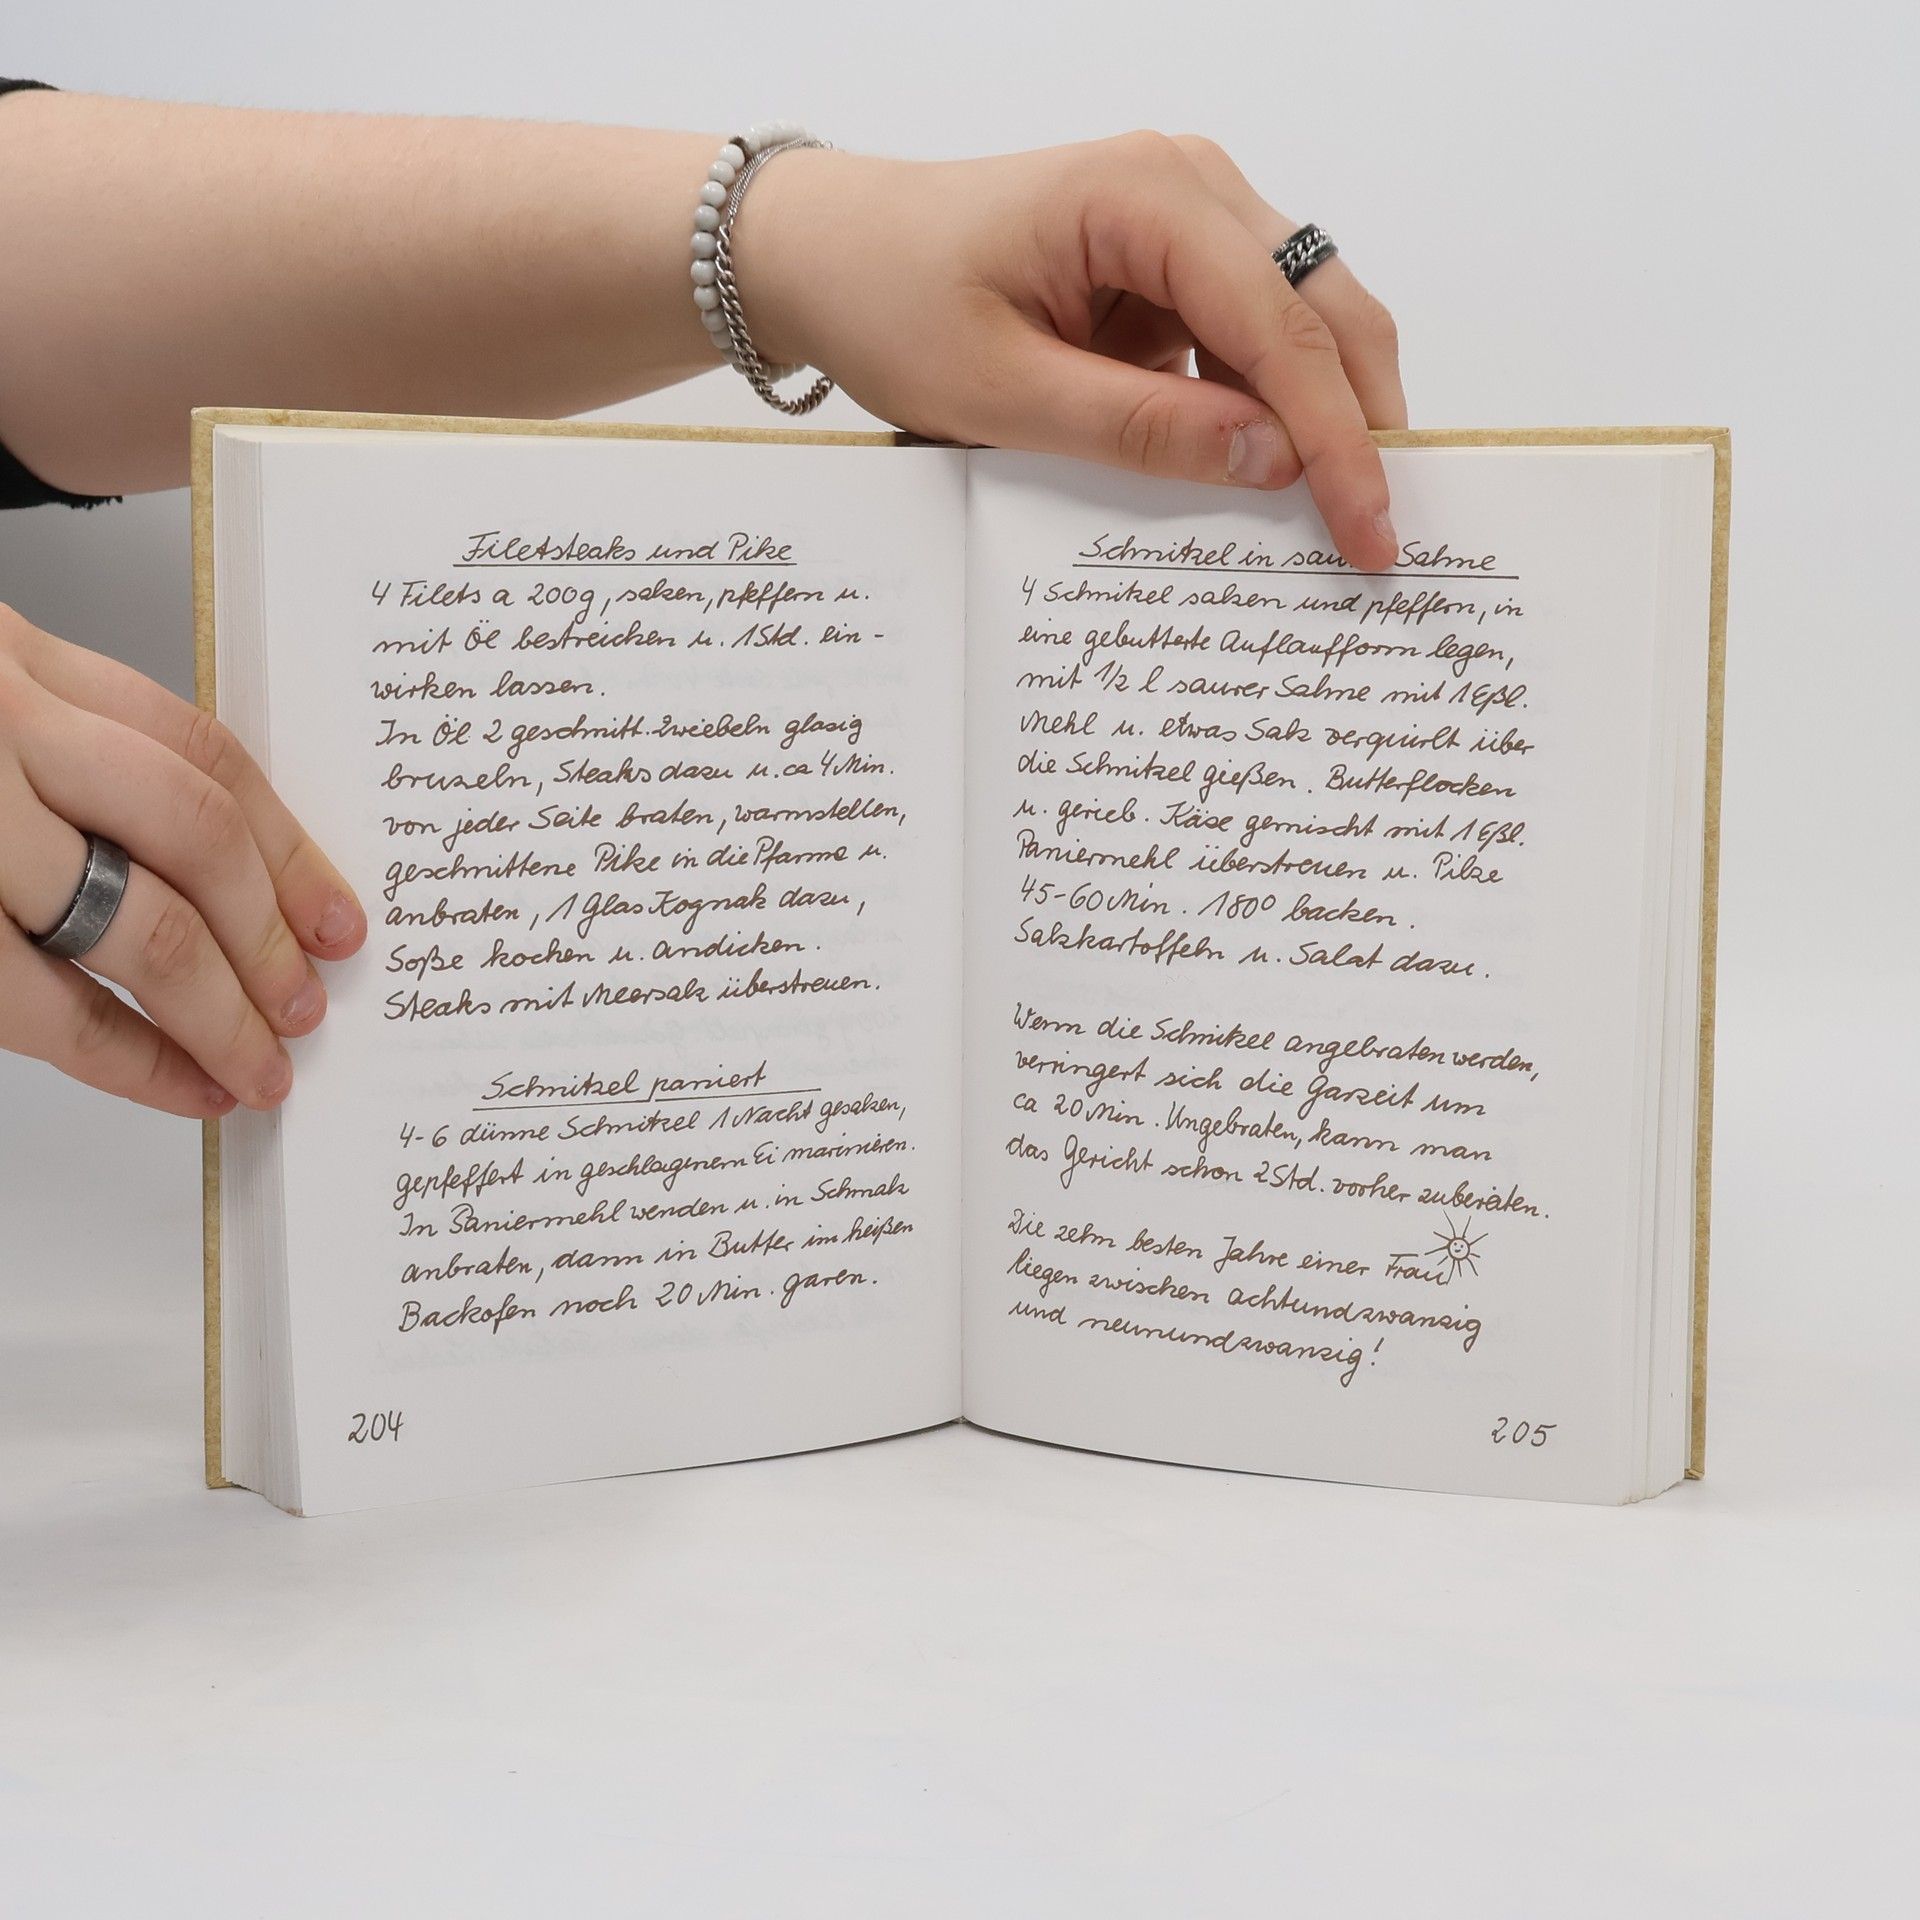 Filetsteaks und Pilze
4 Filets a 200g, salzen, pfeffern u.
mit Öl bestreichen u. 1 Std. ein-
wirken lassen.
In Öl 2 geschnitt. Zwiebeln glasig
bruzeln, Steaks dazu u. ca 4 Min.
von jeder Seite braten, warmstellen,
geschnittene Pilze in die Pfanne u.
anbraten, 1 Glas Kognak dazu,
Soße kochen u. andicken.
Steaks mit Meersalz überstreuen.
Schnitzel paniert
4-6 dünne Schnitzel 1 Nacht gesalzen,
gepfeffert in geschlagenem Ei marinieren.
In Paniermehl wenden u. in Schmalz
anbraten, dann in Butter im heißen
Backofen noch 20 Min. garen.
204
Schnitzel in Sahne
4 Schnitzel salzen und pfeffern, in
eine gebutterte Auflaufform legen,
mit 1/2 l saurer Sahne mit 1 Eßl.
Mehl u. etwas Salz verquirlt über
die Schnitzel gießen. Butterflocken
u. gerieb. Käse gemischt mit 1 Eßl.
Paniermehl überstreuen u. Pilze
45-60 Min. 180° backen.
Salzkartoffeln u. Salat dazu.
Wenn die Schnitzel angebraten werden,
verringert sich die Garzeit um
ca 20 Min. Ungebraten, kann man
das Gericht schon 2 Std. vorher zubereiten.
Die zehn besten Jahre einer Frau
liegen zwischen achtundzwanzig
und neunundzwanzig!
205